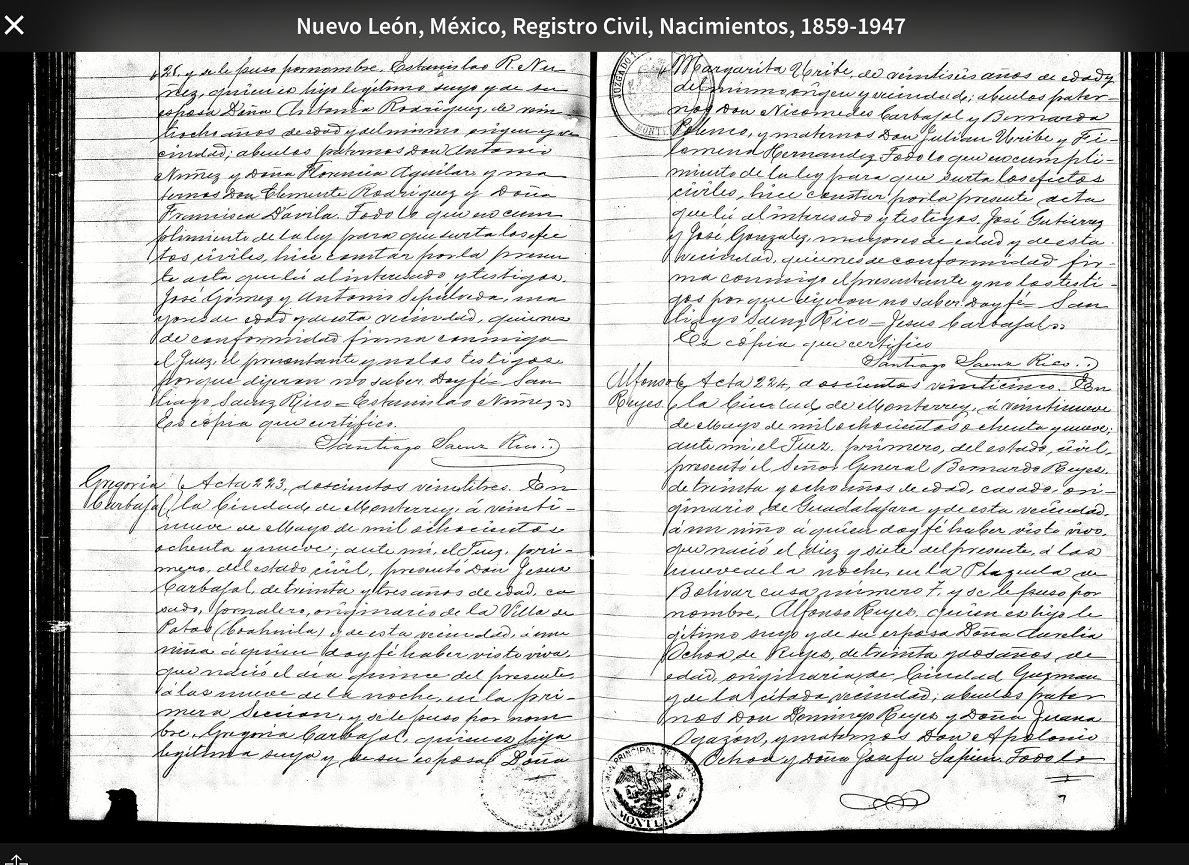 Nuevo León, México, Registro Civil, Nacimientos, 1859-1947
25, y se le puso por nombre, Estanislao R. Nu-
ñez, quien es hijo legitimo suyo y de su
esposa Doña Antonia Rodriguez, de vein
tiocho años de edad y del mismo origen y ve
cindad; abuelos paternos Don Antonio
Nuñez y Doña Florencia Aguilar, y ma
ternos Don Clemente Rodriguez y Doña
Francisca Davila. Todo lo que en cum
plimiento de la ley para que surta los efec
tos civiles, hice constar por la presen
te acta que lei al interesado y testigos,
José Gómez y Antonio Sepulveda, ma
yores de edad y de esta vecindad, quienes
de conformidad firma conmigo
el Juez, el presentante y no los testigos
porque dijeron no saber. Doy fé = San
tiago Saenz Rico = Estanislao Nuñez
Es cópia que certifico.
Santiago Saenz Rico.
Gregoria
Carbajal
Acta 223, doscientos veintitres. En
la Ciudad de Monterrey, á veinti-
nueve de Mayo de mil ochocientos
ochenta y nueve; ante mi, el Juez, pri-
mero, del estado civil, presentó Don Jesus
Carbajal, de treinta y tres años de edad, ca
sado, jornalero, originario de la Villa de
Patos (Coahuila) y de esta vecindad, á una
niña á quien doy fé haber visto viva
que nació el dia quince del presente
á las nueve de la noche, en la pri-
mera Seccion, y se le puso por nom
bre, Gregoria Carbajal, quien es hija
legitima suya y de su esposa Doña
Margarita Uribe, de veintiseis años de edad y
del mismo origen y vecindad; abuelos pater-
nos Don Nicomedes Carbajal y Bernarda
y maternos Don Julian Uribe y Fi-
lomena Hernandez. Todo lo que en cumpli-
miento de la ley para que surta los efectos
civiles, hice constar por la presente acta
que lei al interesado y testigos, José Gutierrez
y José Gonzalez, mayores de edad y de esta
vecindad, quienes de conformidad fir-
ma conmigo el presentante y no los testi-
gos porque dijeron no saber. Doy fé = San
tiago Saenz Rico = Jesus Carbajal
Es cópia que certifico
Santiago Saenz Rico.
Alfonso
Reyes
Acta 224, doscientos veinticinco. En
la Ciudad de Monterrey, á veintinueve
de Mayo de mil ochocientos ochenta y nueve;
ante mi, el Juez, primero, del estado civil,
presentó el Señor General Bernardo Reyes,
de treinta y ocho años de edad, casado, ori-
ginario de Guadalajara y de esta vecindad,
á un niño á quien doy fé haber visto vivo,
que nació el diez y siete del presente, á las
nueve de la noche, en la Plazuela de
Bolivar casa número 7, y se le puso por
nombre, Alfonso Reyes, quien es hijo le
gitimo suyo y de su esposa Doña Aurelia
Ochoa de Reyes, de treinta y dos años, de
edad, originaria, de Ciudad Guzman
y de la citada vecindad, abuelos pater
nos Don Domingo Reyes y Doña Juana
Ogazón, y maternos Don Apolonio
Ochoa y Doña Josefa Sapien. Todo lo